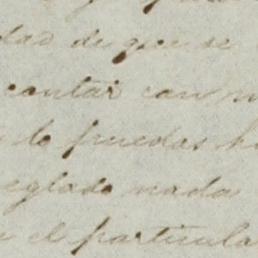 dad de que se
contar con
lo puedas
eglado nada
el particula